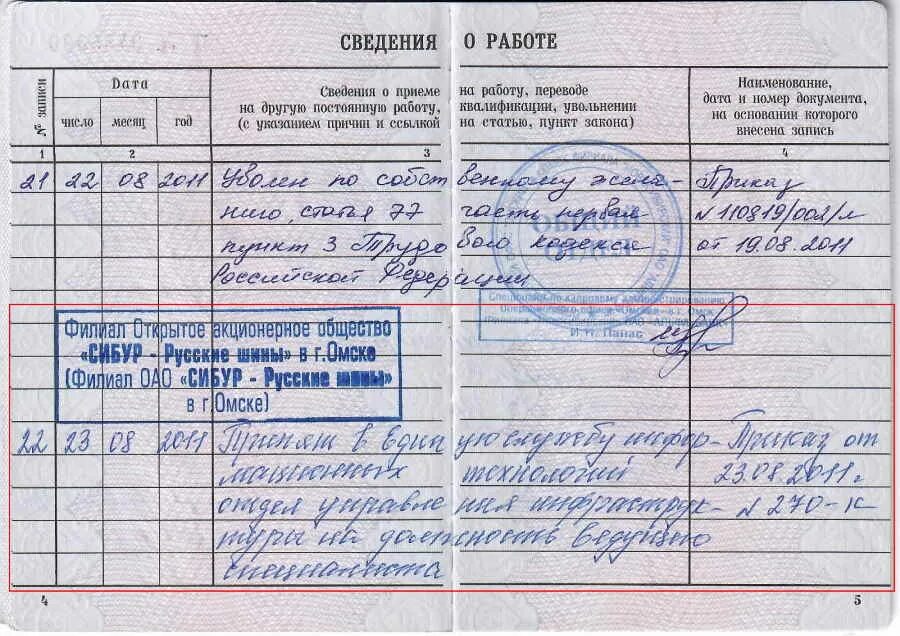 СВЕДЕНИЯ О РАБОТЕ
№ записи
Дата
число месяц год
Сведения о приеме на работу, переводе
на другую постоянную работу, квалификации, увольнении
(с указанием причин и ссылкой на статью, пункт закона)
Наименование,
дата и номер документа,
на основании которого
внесена запись
1 2 3 4
21 22 08 2011 Уволен по собственному жела- Приказ
нию, статья 77 часть первая N 110819/002/л
пункт 3 Трудового кодекса от 19.08.2011
Российской Федерации
Общий
отдел
Специалист по кадровому администрированию
И. Н. Панас
Филиал Открытое акционерное общество
«СИБУР - Русские шины» в г.Омске
(Филиал ОАО «СИБУР - Русские шины»
в г.Омске)
22 23 08 2011 Принят в Единую службу инфор- Приказ от
мационных технологий 23.08.2011г.
отдел управления инфраструк- N 270-к
туры на должность ведущего
специалиста
4 5